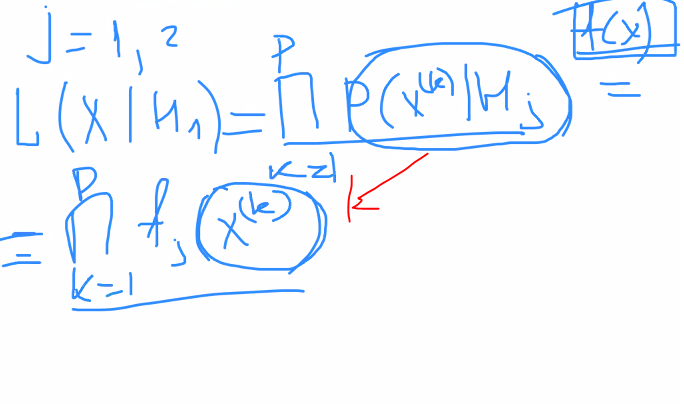 j = 1, 2
f(x) =
L(X | H₁) = ∏_{k=1}^{P} P(x^{(k)} | H_j)
= ∏_{k=1}^{P} f_j x^{(k)}